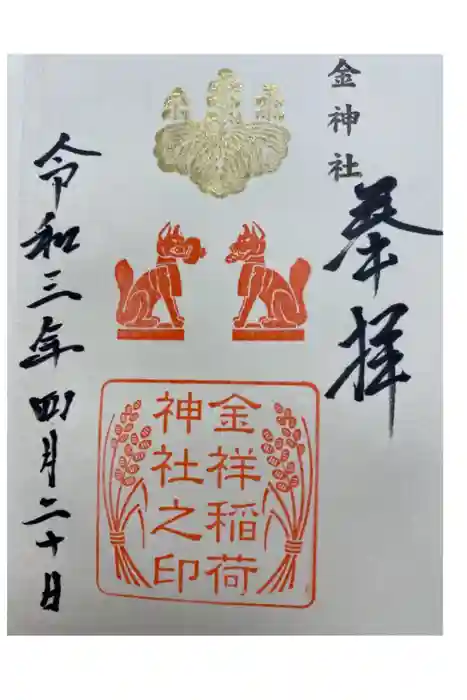 金神社
奉拝
金祥稲荷
神社之印
令和三年四月二十日